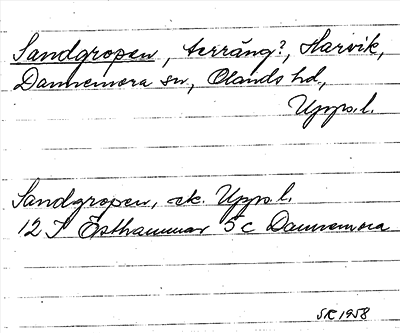 Sandgropen, terräng?, Harvik,
Dannemora sn, Olands hd,
Upps. l.
Sandgropen, ek. Upps. l.
12 I Östhammar 5c Dannemora
SK 1958